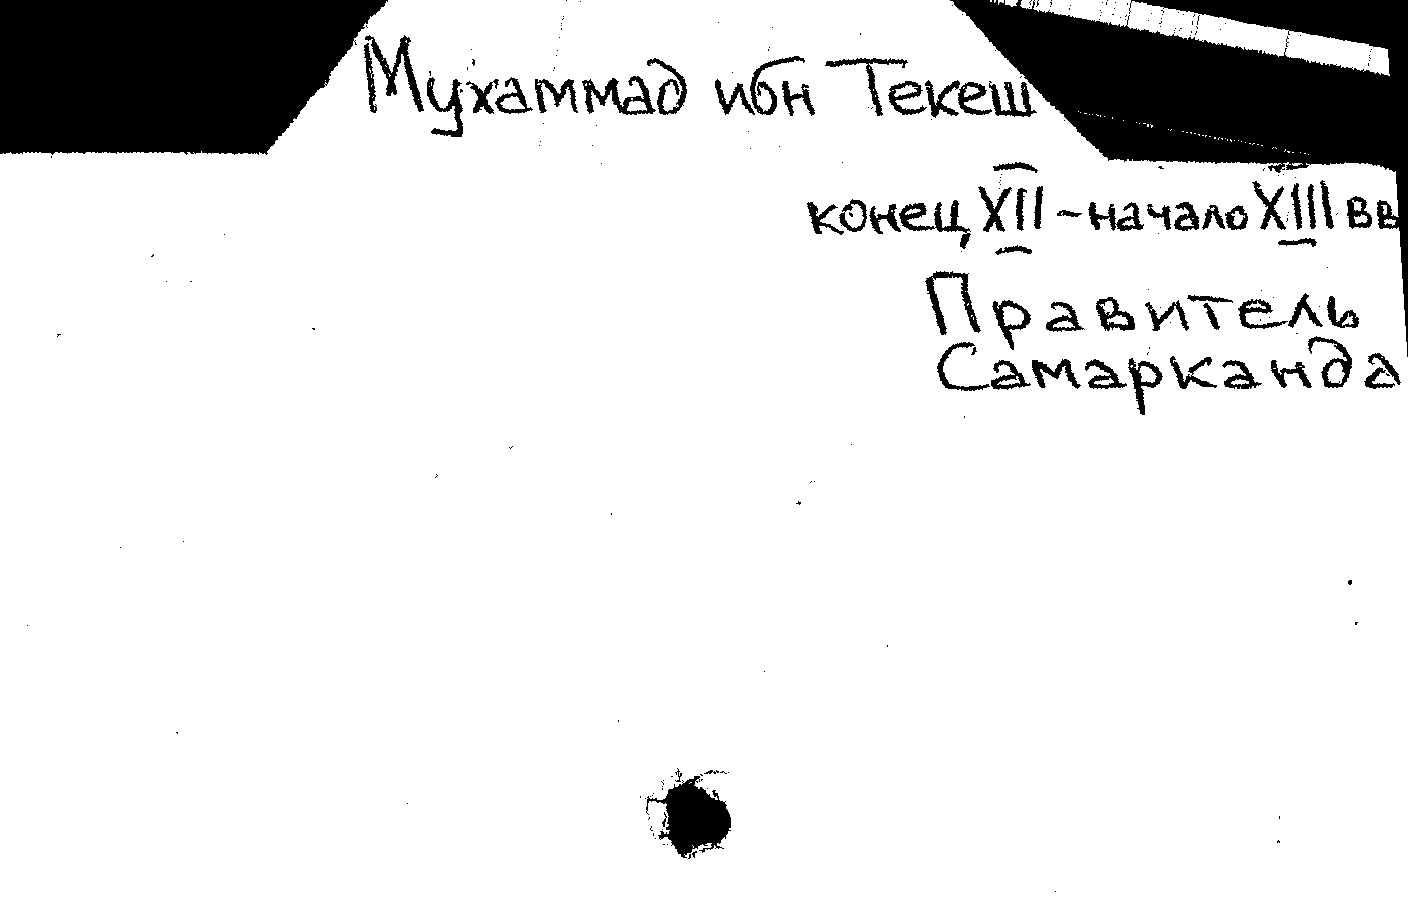 Мухаммад ибн Текеш
конец XII - начало XIII вв
Правитель
Самарканда